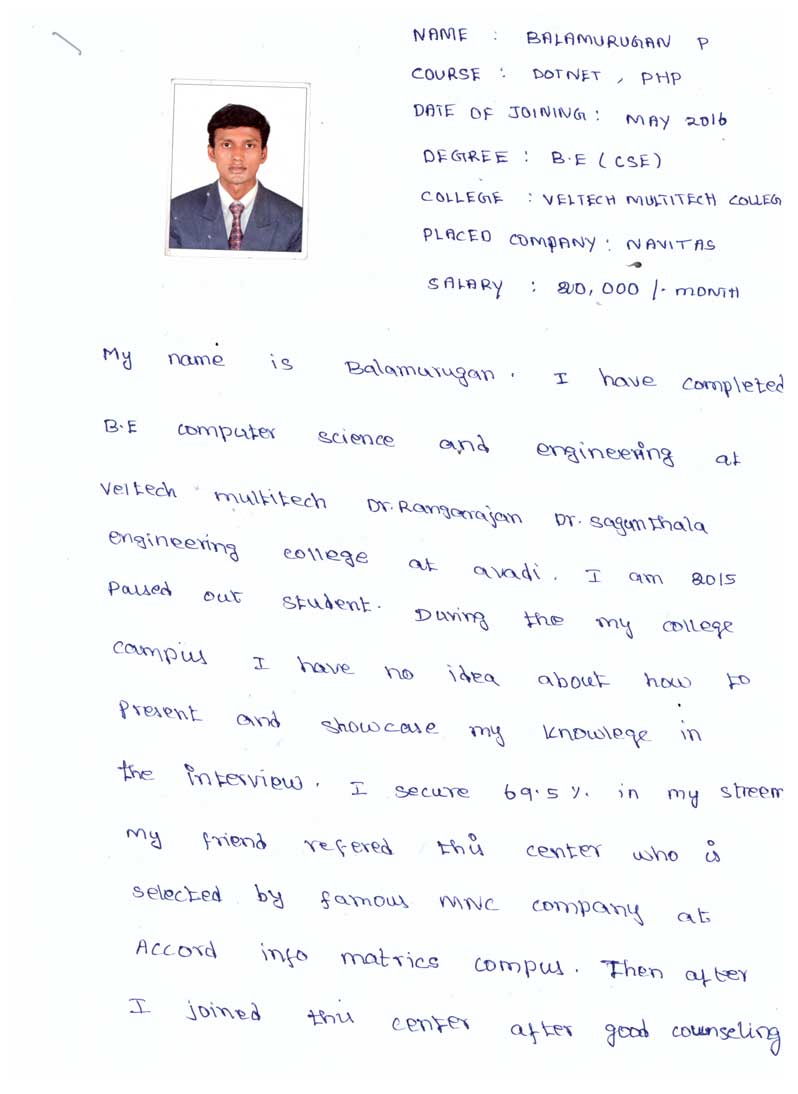 NAME : BALAMURUGAN P
COURSE : DOTNET , PHP
DATE OF JOINING : MAY 2016
DEGREE : B.E ( CSE )
COLLEGE : VELTECH MULTITECH COLLEG
PLACED COMPANY : NAVITAS
SALARY : 20,000 /- MONTH
My name is Balamurugan . I have completed
B.E computer science and engineering at
Veltech multitech Dr.Rangarajan Dr.Sagunthala
engineering college at avadi . I am 2015
Passed out student . During the my college
campus I have no idea about how to
present and showcase my knowlege in
the interview . I secure 69.5 % in my streem
My friend refered this center who is
selected by famous MNC company at
Accord info matrics compus . Then after
I joined this center after good counseling